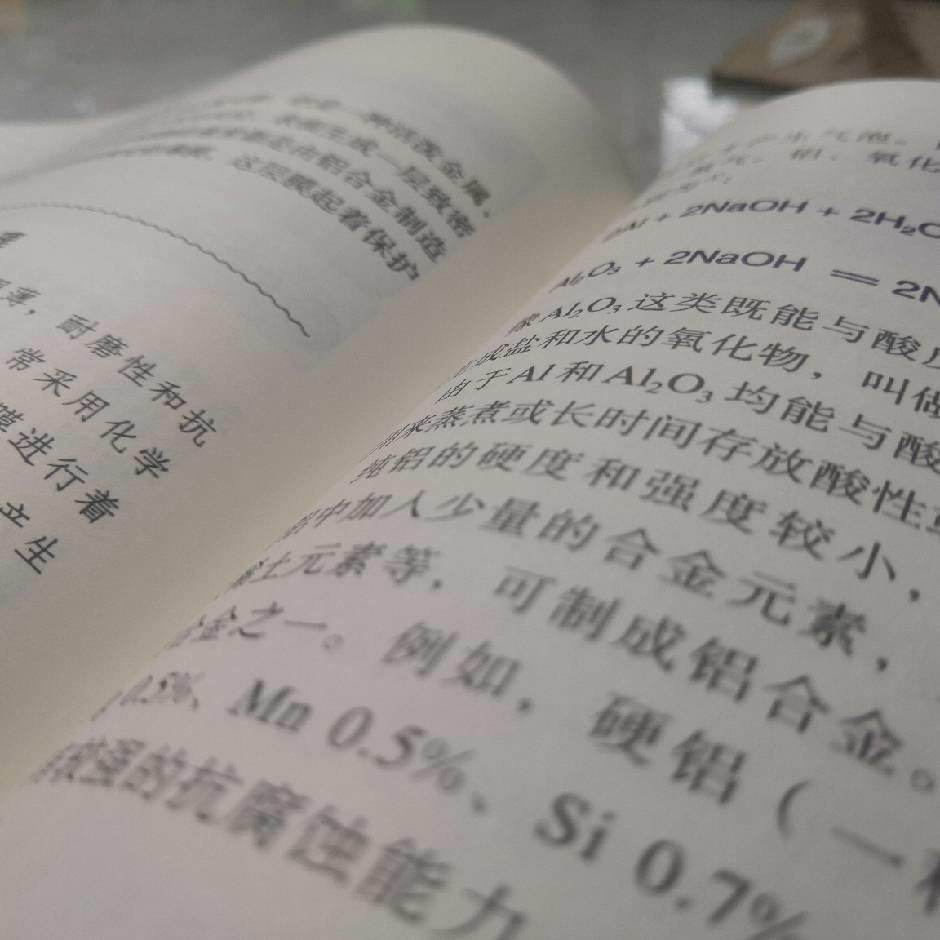 活泼金属，
生成一层致密
是由铝合金制造
这层膜起着保护
薄，耐磨性和抗
常采用化学
进行着
立生
产生气泡。
铝、氧化
Al + 2NaOH + 2H₂O
Al₂O₃ + 2NaOH ══ 2N
像Al₂O₃这类既能与酸
成盐和水的氧化物，叫做
由于Al和Al₂O₃均能与酸
用来蒸煮或长时间存放酸性
纯铝的硬度和强度较小，
铝中加入少量的合金元素，
土元素等，可制成铝合金。
合金之一。例如，硬铝（一种
0.5%、Mn 0.5%、Si 0.7%
较强的抗腐蚀能力